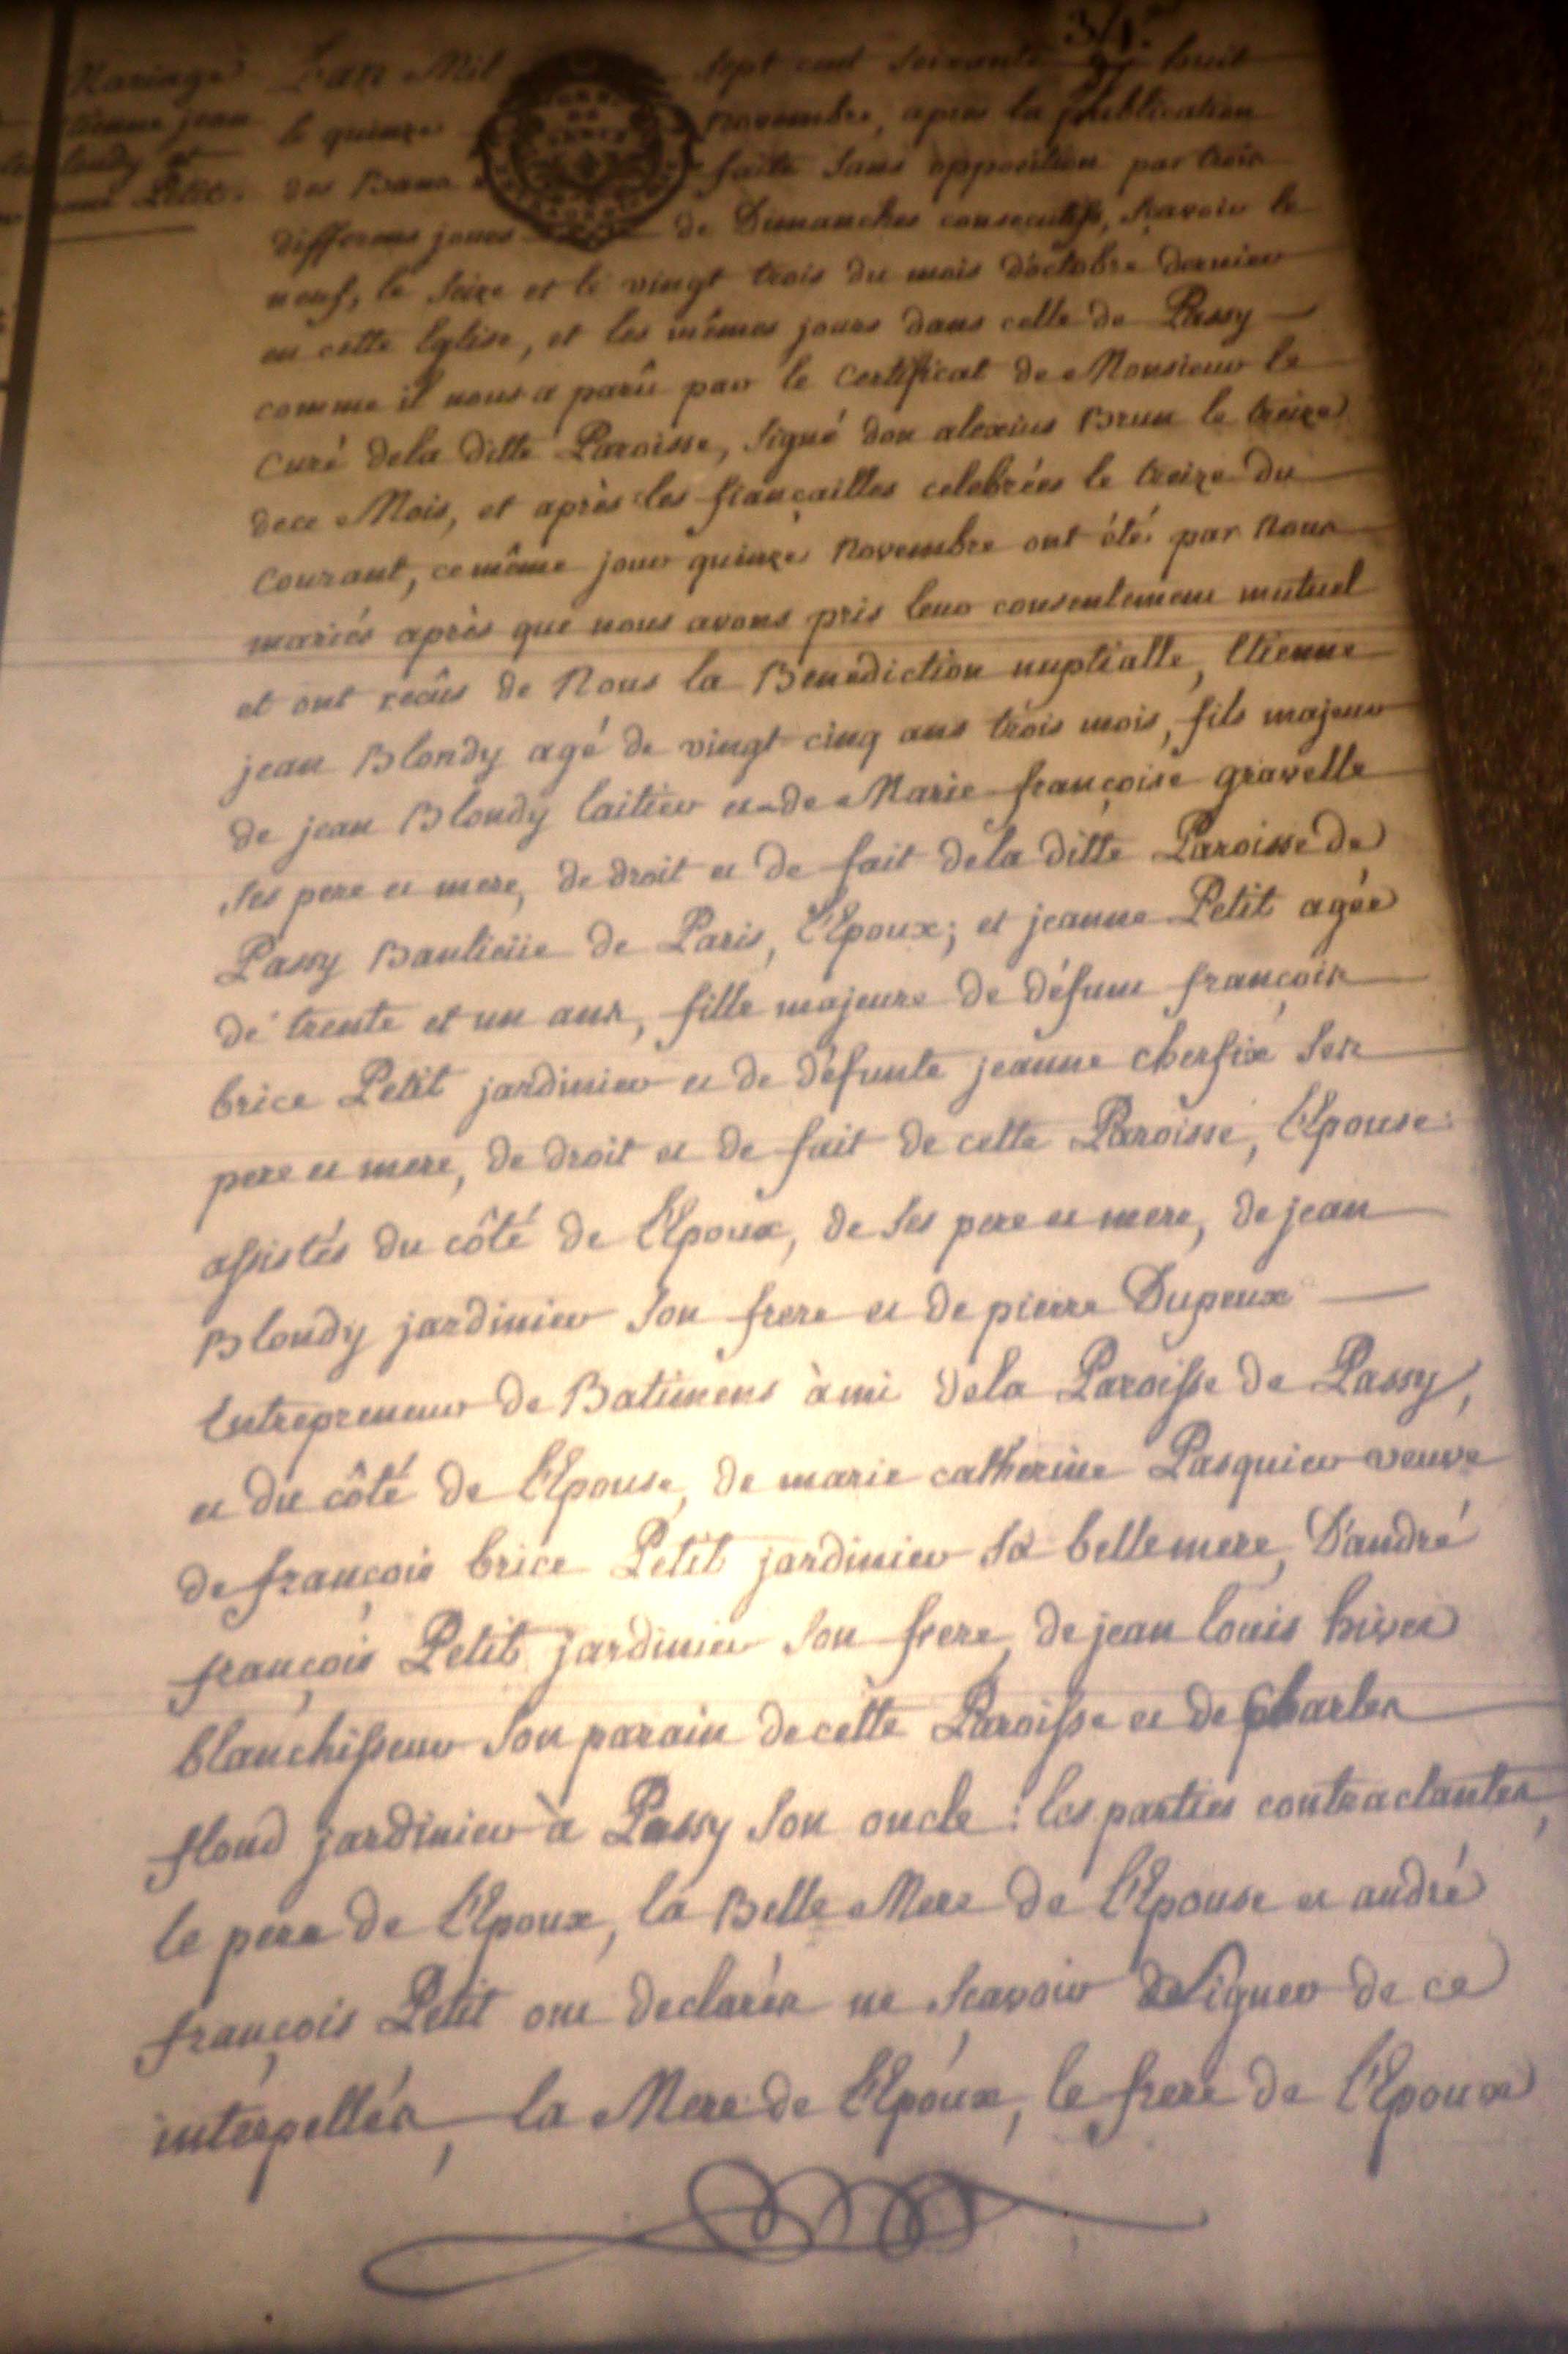 34.
Mariage
Etienne jean
Blondy et
jeanne Petit.
L'an Mil sept cent soixante huit
le quinze novembre, apres la publication
des Bans faite sans opposition par trois
differens jours de Dimanches consecutifs, sçavoir le
neuf, le seize et le vingt trois du mois d'octobre dernier
en cette Eglise, et les mêmes jours dans celle de Passy
comme il nous a parû par le Certificat de Monsieur le
Curé dela ditte Paroisse, signé don alexius Brun le treize
dece Mois, et après les fiançailles celebrées le treize du
Courant, ce même jour quinze Novembre ont été par Nous
mariés après que nous avons pris leur consentement mutuel
et ont reçûs de Nous la Benediction nuptialle, Etienne
jean Blondy agé de vingt-cinq ans trois mois, fils majeur
de jean Blondy laitier et de Marie françoise gravelle
ses pere et mere, de droit et de fait dela ditte Paroisse de
Passy Banlieüe de Paris, l'Epoux; et jeanne Petit agée
de trente et un ans, fille majeure de défunt françois
brice Petit jardinier et de défunte jeanne cherfix ses
pere et mere, de droit et de fait de cette Paroisse, l'Epouse
assistés du côté de l'Epoux, de ses pere et mere, de jean
Blondy jardinier son frere et de pierre Dupeux
Entrepreneur de Batimens àmi dela Paroisse de Passy,
et du côté de l'Epouse, de marie catherine Pasquier veuve
de françois brice Petit jardinier sa bellemere, D'andré
françois Petit jardinier son frere, de jean louis hiver
blanchisseur son parain de cette Paroisse et de Charles
floud jardinier à Passy son oncle : les parties contractantes,
le pere de l'Epoux, la Belle Mere de l'Epouse et andré
françois Petit ont declarés ne scavoir signer de ce
interpellés, la Mere de l'Epoux, le frere de l'Epoux